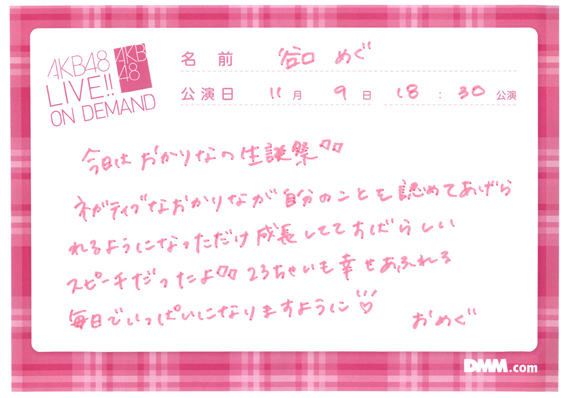 AKB48
LIVE!!
ON DEMAND
AKB
48
名前 谷口 めぐ
公演日 11月 9日 18:30公演
今日は おかりなの生誕祭
ネガティブなおかりなが自分のことを認めてあげら
れるようになっただけ成長しててすばらしい
スピーチだったよ 23ちゃいも幸せあふれる
毎日でいっぱいになりますように♡
おめぐ
DMM.com